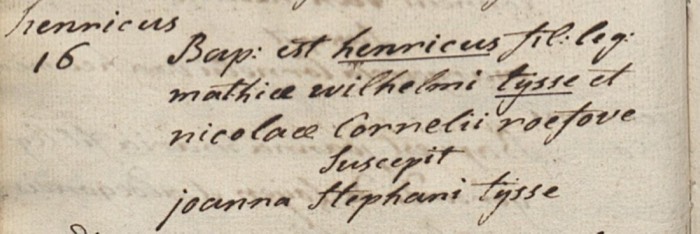 henricus
16
Bap: est henricus fil: leg:
mathiæ wilhelmi tysse et
nicolaæ Cornelii roefove
Suscepit
joanna Stephani tysse